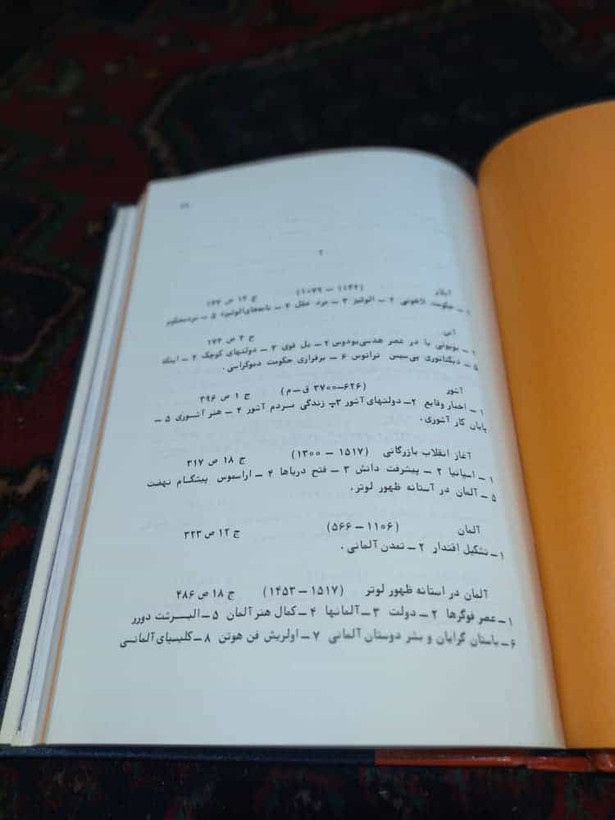 آ
آبلار (۱۱۴۲ – ۱۰۷۹) ج ۱۳ ص
۱ – حکومت لاهوتی ۲ – الوئیز ۳ – مرد عقل ۴ – نامه‌های الوئیزه ۵ – مرد محکوم
آتن ج ۴ ص
۱ – بویوتی یا در عصر هسیودوس ۲ – دلفوی ۳ – دولتهای کوچک ۴ – اتیکا
۵ – دیکتاتوری پی‌سیس‌تراتوس ۶ – برقراری حکومت دموکراسی.
آشور (۶۲۶–۳۷۰۰ ق – م) ج ۱ ص ۳۹۶
۱ – اخبار وقایع ۲ – دولتهای آشور ۳ – زندگی مردم آشور ۴ – هنر آشوری ۵ –
پایان کار آشوری.
آغاز انقلاب بازرگانی (۱۵۱۷ – ۱۳۰۰) ج ۱۸ ص ۳۱۷
۱ – اسپانیا ۲ – پیشرفت دانش ۳ – فتح دریاها ۴ – اراسموس پیشگام نهضت
۵ – آلمان در آستانه ظهور لوتر.
آلمان (۱۱۰۶ – ۵۶۶) ج ۱۲ ص ۳۲۳
۱ – تشکیل اقتدار ۲ – تمدن آلمانی.
آلمان در استانه ظهور لوتر (۱۵۱۷ – ۱۴۵۳) ج ۱۸ ص ۴۸۶
۱ – عصر فوگرها ۲ – دولت ۳ – آلمانها ۴ – کمال هنر آلمان ۵ – البرشت دورر
۶ – باستان گرایان و بشر دوستان آلمانی ۷ – اولریش فن هوتن ۸ – کلیسای آلمانی